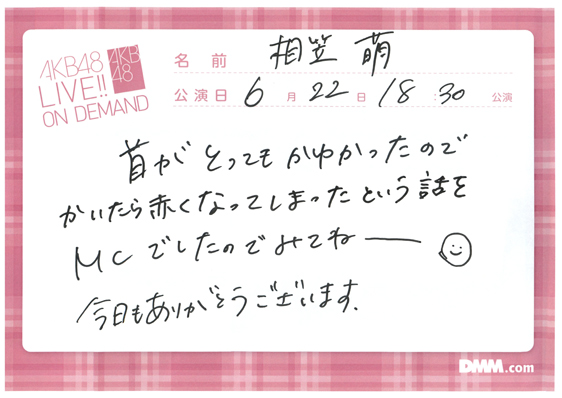 AKB48
LIVE!!
ON DEMAND
AKB
48
名前 相笠 萌
公演日 6月22日 18:30 公演
首がとってもかゆかったので
かいたら赤くなってしまったという話を
MCでしたのでみてねー
今日もありがとうございます.
DMM.com